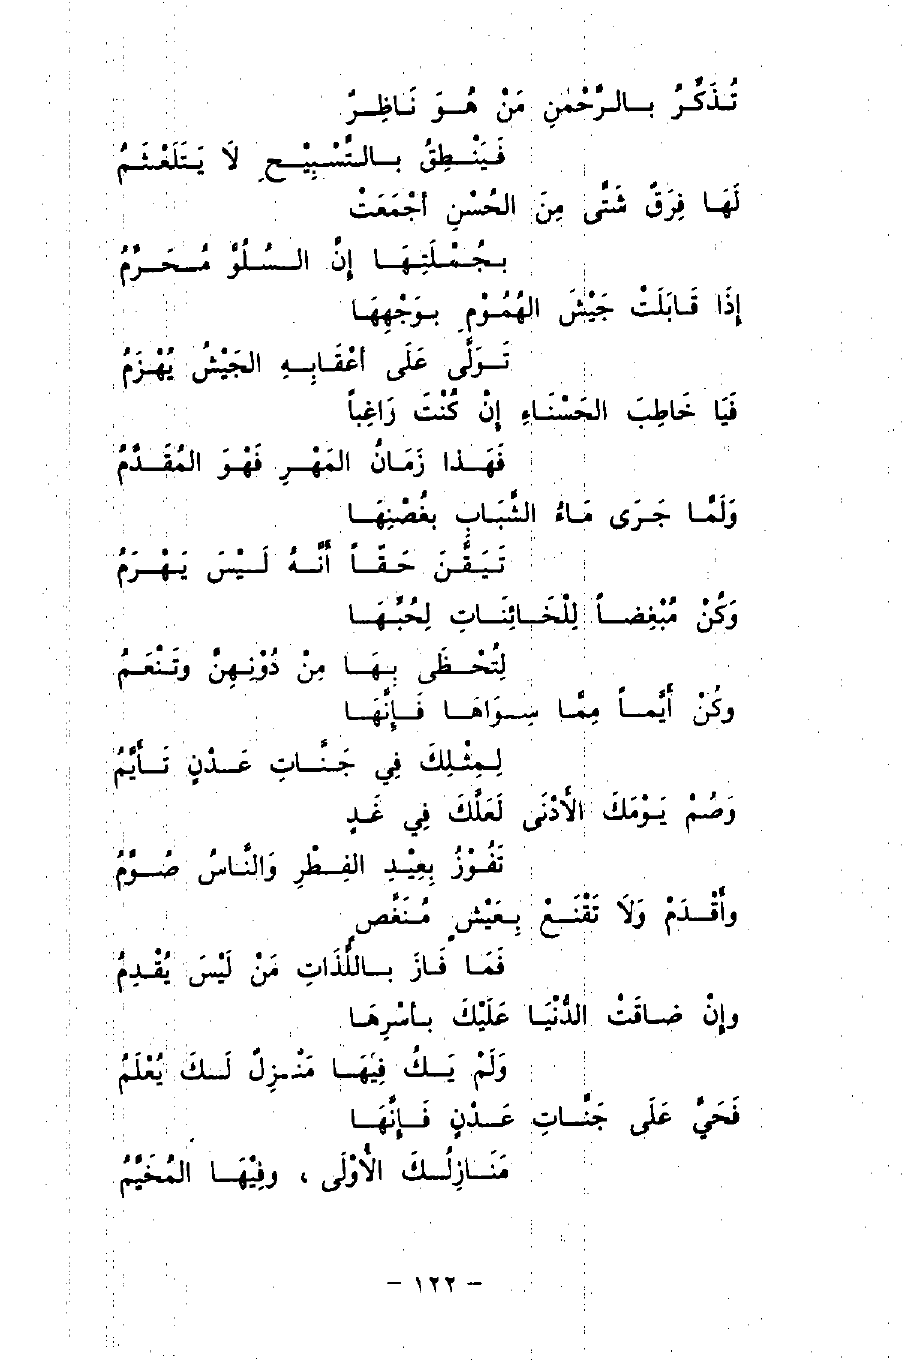 تُذَكِّرُ بِالرَّحْمٰنِ مَنْ هُوَ نَاظِرٌ
فَيَنْطِقُ بِالتَّسْبِيْحِ لَا يَتَلَعْثَمُ
لَهَا فِرَقٌ شَتَّى مِنَ الحُسْنِ أجْمَعَتْ
بِجُمْلَتِهَا إنَّ السُلُوَّ مُحَرَّمُ
إذَا قَابَلَتْ جَيْشَ الهُمُوْمِ بوَجْهِهَا
تَوَلَّى عَلَى أعْقَابِهِ الجَيْشُ يُهْزَمُ
فَيَا خَاطِبَ الحَسْنَاءِ إنْ كُنْتَ رَاغِباً
فَهَذا زَمَانُ المَهْرِ فَهْوَ المُقَدَّمُ
وَلَمَّا جَرَى مَاءُ الشَّبَابِ بغُصْنِهَا
تَيَقَّنَ حَقّاً أنَّهُ لَيْسَ يَهْرَمُ
وَكُنْ مُبْغِضاً لِلْخَائِنَاتِ لِحُبِّهَا
لِتُحْظَى بِهَا مِنْ دُوْنِهِنَّ وتَنْعَمُ
وكُنْ أيِّماً مِمَّا سِوَاهَا فَإنَّهَا
لِمِثْلِكَ فِي جَنَّاتِ عَدْنٍ تَأيَّمُ
وَصُمْ يَوْمَكَ الأدْنَى لَعَلَّكَ فِي غَدٍ
تَفُوْزُ بِعِيْدِ الفِطْرِ وَالنَّاسُ صُوَّمُ
وأقْدَمْ وَلَا تَقْنَعْ بِعَيْشٍ مُنَغَّصٍ
فَمَا فَازَ بِاللَّذَاتِ مَنْ لَيْسَ يُقْدِمُ
وإنْ ضاقَتْ الدُّنْيَا عَلَيْكَ بأسْرِهَا
وَلَمْ يَكُ فِيَهَا مَنْزِلٌ لَكَ يُعْلَمُ
فَحَيَّ عَلَى جَنَّاتِ عَدْنٍ فَإنَّهَا
مَنَازِلُكَ الأوْلَى ، وفِيْهَا المُخَيَّمُ
– ١٢٢ –